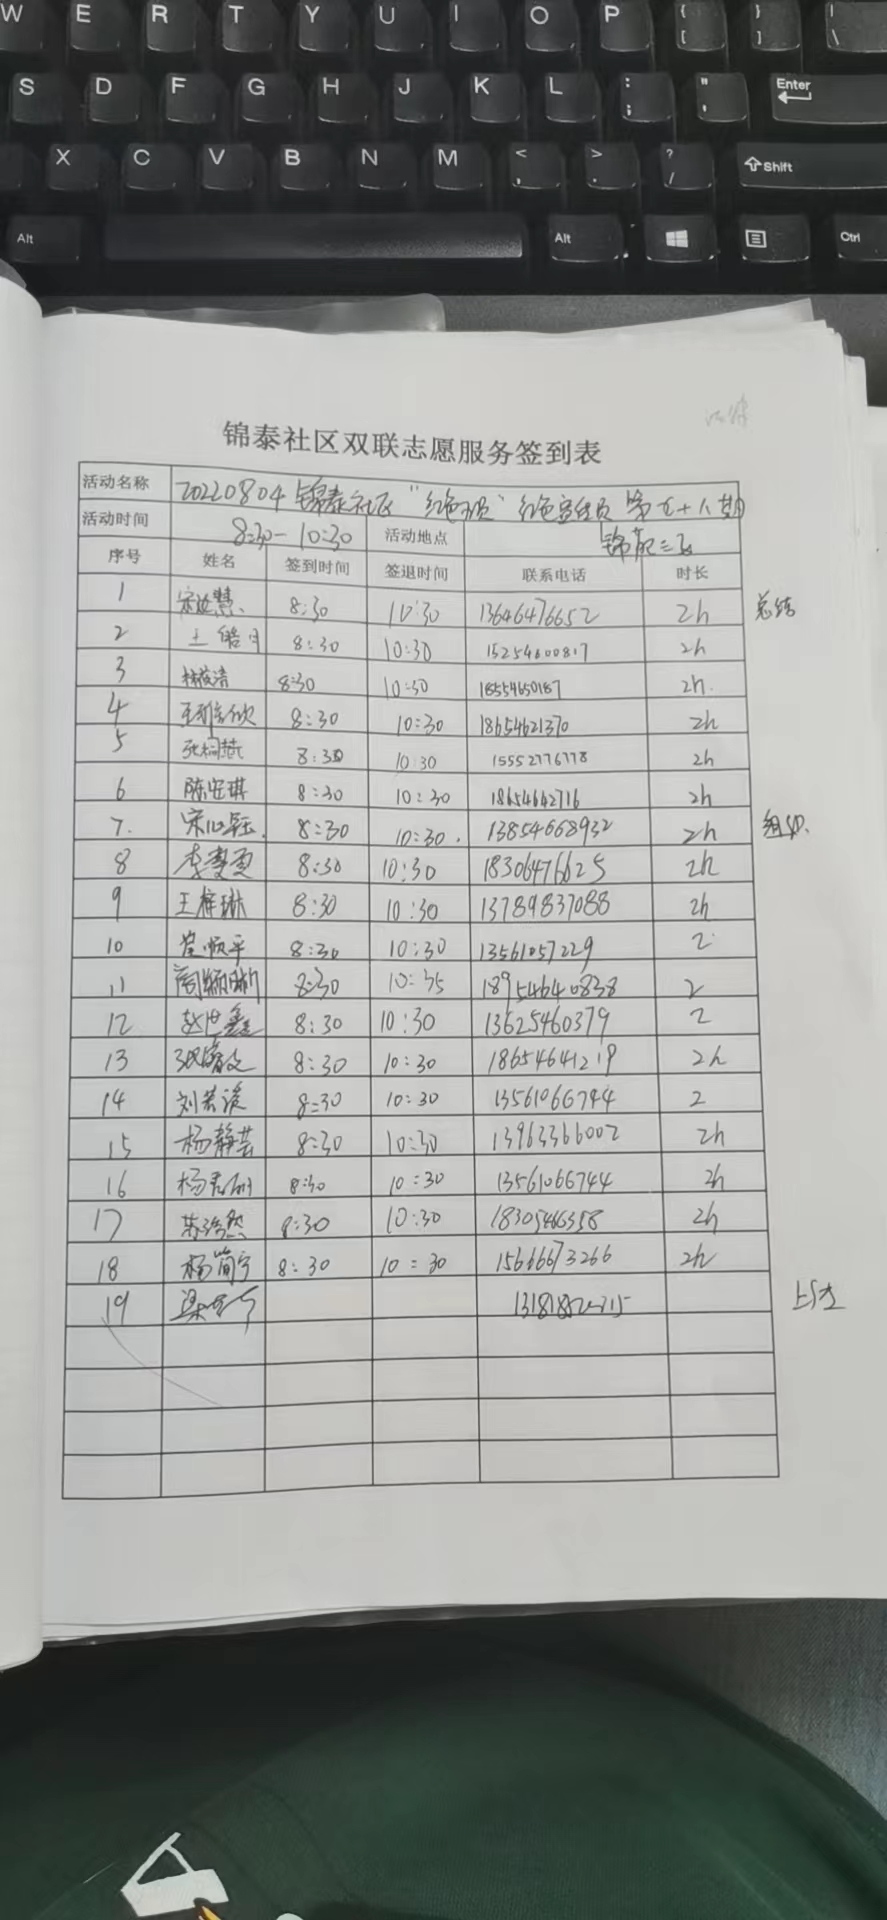 W E R T Y U I O P { [ } ] | \
S D F G H J K L : ; " ' Enter
X C V B N M < , > . ? / Shift
Alt Alt Ctrl
锦泰社区双联志愿服务签到表
活动名称 20220804 锦泰社区 "红色 " 红色宣传员 第 十八期
活动时间 8:30-10:30 活动地点 锦苑三区
序号 姓名 签到时间 签退时间 联系电话 时长
1 宋 慧 8:30 10:30 13646476652 2h 总结
2 王皓月 8:30 10:30 15254600817 2h
3 8:30 10:30 18554650187 2h.
4 8:30 10:30 18654621370 2h
5 8:30 10:30 15552776778 2h
6 陈安琪 8:30 10:30 18654642716 2h
7. 宋心钰. 8:30 10:30. 13854668932 2h 组织.
8 李 8:30 10:30 18306476625 2h
9 王梓琳 8:30 10:30 13789837088 2h
10 崔顺平 8:30 10:30 13561057229 2
11 8:30 10:35 18954640838 2
12 赵世鑫 8:30 10:30 13625460379 2
13 8:30 10:30 18654641219 2h
14 刘若溪 8:30 10:30 13561066744 2
15 杨静芸 8:30 10:30 13963366002 2h
16 杨 8:30 10:30 13561066744 2h
17 苏浩然 8:30 10:30 18305466358 2h
18 杨简宁 8:30 10:30 15666673266 2h
19 梁 上传